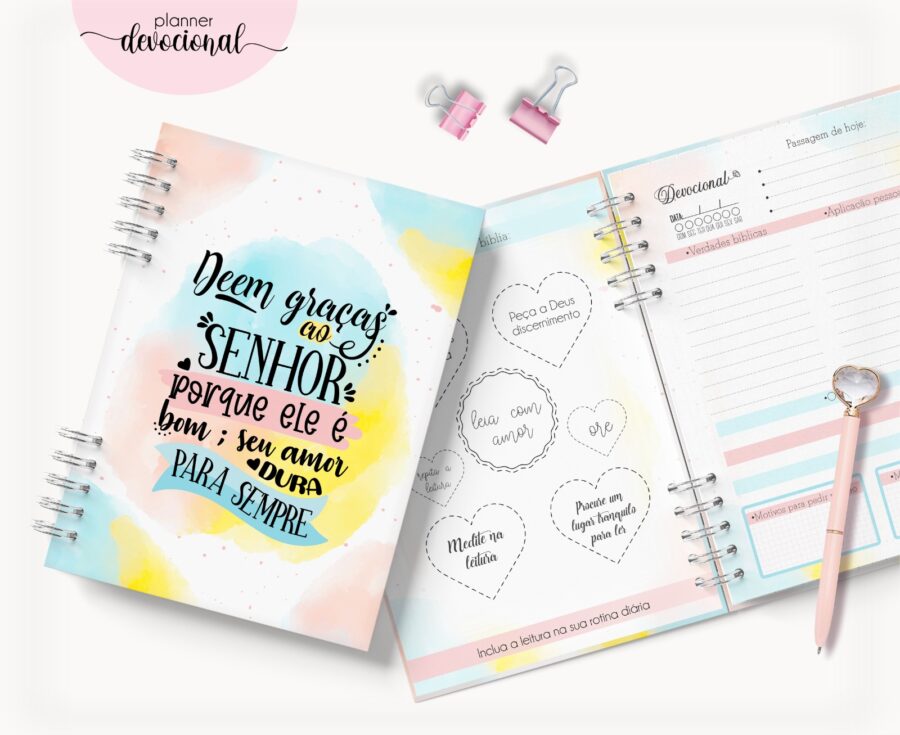 planner
devocional
Deem graças
ao
SENHOR
porque ele é
bom ; seu amor
DURA
PARA SEMPRE
bíblia:
Peça a Deus
discernimento
leia com
amor
ore
leitura
Medite na
leitura
Procure um
lugar tranquilo
para ler
Inclua a leitura na sua rotina diária
Devocional
DATA: / /
DOM SEG TER QUA QUI SEX SAB
Passagem de hoje:
•Verdades bíblicas
•Aplicação pessoa
•Motivos para pedir